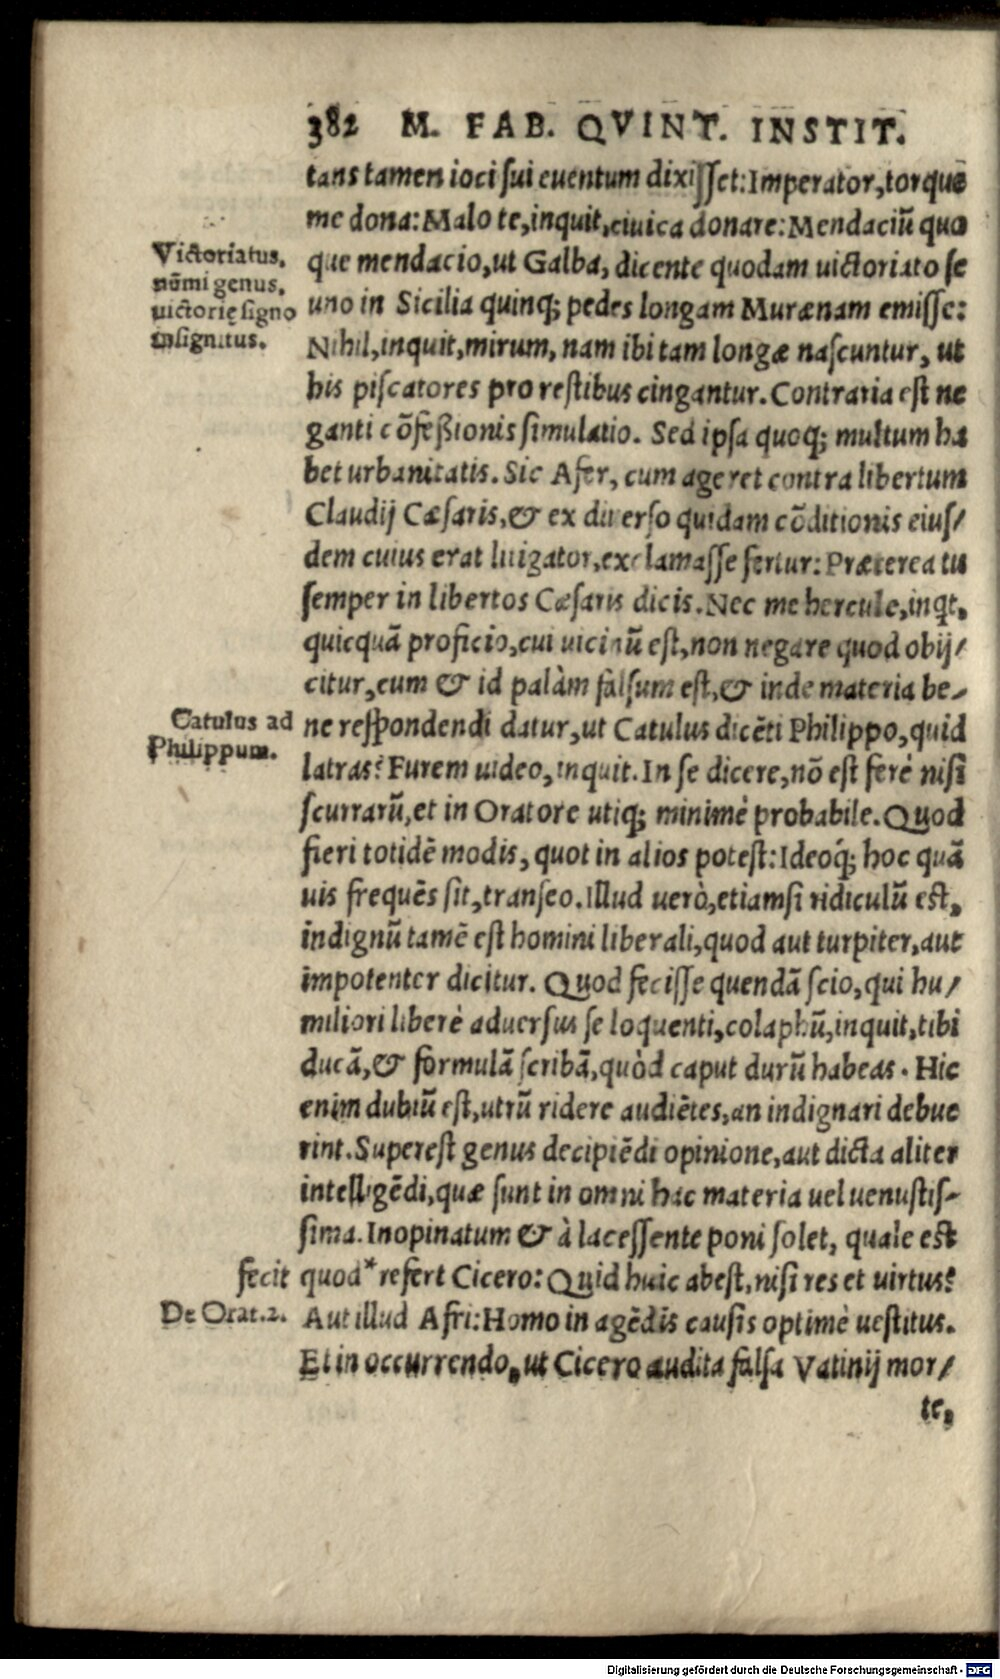 382 M. FAB. QVINT. INSTIT.
tans tamen ioci sui euentum dixisset: Imperator, torque
me dona: Malo te, inquit, ciuica donare: Mendaciũ quo
Victoriatus,
nũmi genus,
uictorię signo
insignitus.
que mendacio, ut Galba, dicente quodam uictoriato se
uno in Sicilia quinq; pedes longam Murænam emisse:
Nihil, inquit, mirum, nam ibi tam longæ nascuntur, ut
his piscatores pro restibus cingantur. Contraria est ne
ganti cõfeßionis simulatio. Sed ipsa quoq; multum ha
bet urbanitatis. Sic Afer, cum ageret contra libertum
Claudij Cæsaris, & ex diuerso quidam cõditionis eius/
dem cuius erat litigator, exclamasse fertur: Præterea tu
semper in libertos Cæsaris dicis. Nec me hercule, inqt,
quicquã proficio, cui uicinũ est, non negare quod obij/
citur, cum & id palàm falsum est, & inde materia be-
Catulus ad
Philippum.
ne respondendi datur, ut Catulus dicẽti Philippo, quid
latras? Furem uideo, inquit. In se dicere, nõ est ferè nisi
scurrarũ, et in Oratore utiq; minimè probabile. Quod
fieri totidẽ modis, quot in alios potest: Ideoq́; hoc quã
uis frequẽs sit, transeo. Illud uerò, etiamsi ridiculũ est,
indignũ tamẽ est homini liberali, quod aut turpiter, aut
impotenter dicitur. Quod fecisse quendã scio, qui hu/
miliori liberè aduersus se loquenti, colaphũ, inquit, tibi
ducã, & formulã scribã, quòd caput durũ habeas. Hic
enim dubiũ est, utrũ ridere audiẽtes, an indignari debue
rint. Superest genus decipiẽdi opinione, aut dicta aliter
intelligẽdi, quæ sunt in omni hac materia uel uenustis-
sima. Inopinatum & à lacessente poni solet, quale est
fecit
quod* refert Cicero: Quid huic abest, nisi res et uirtus?
De Orat.2.
Aut illud Afri: Homo in agẽdis causis optimè uestitus.
Et in occurrendo, ut Cicero audita falsa Vatinij mor/
te,
Digitalisierung gefördert durch die Deutsche Forschungsgemeinschaft - DFG